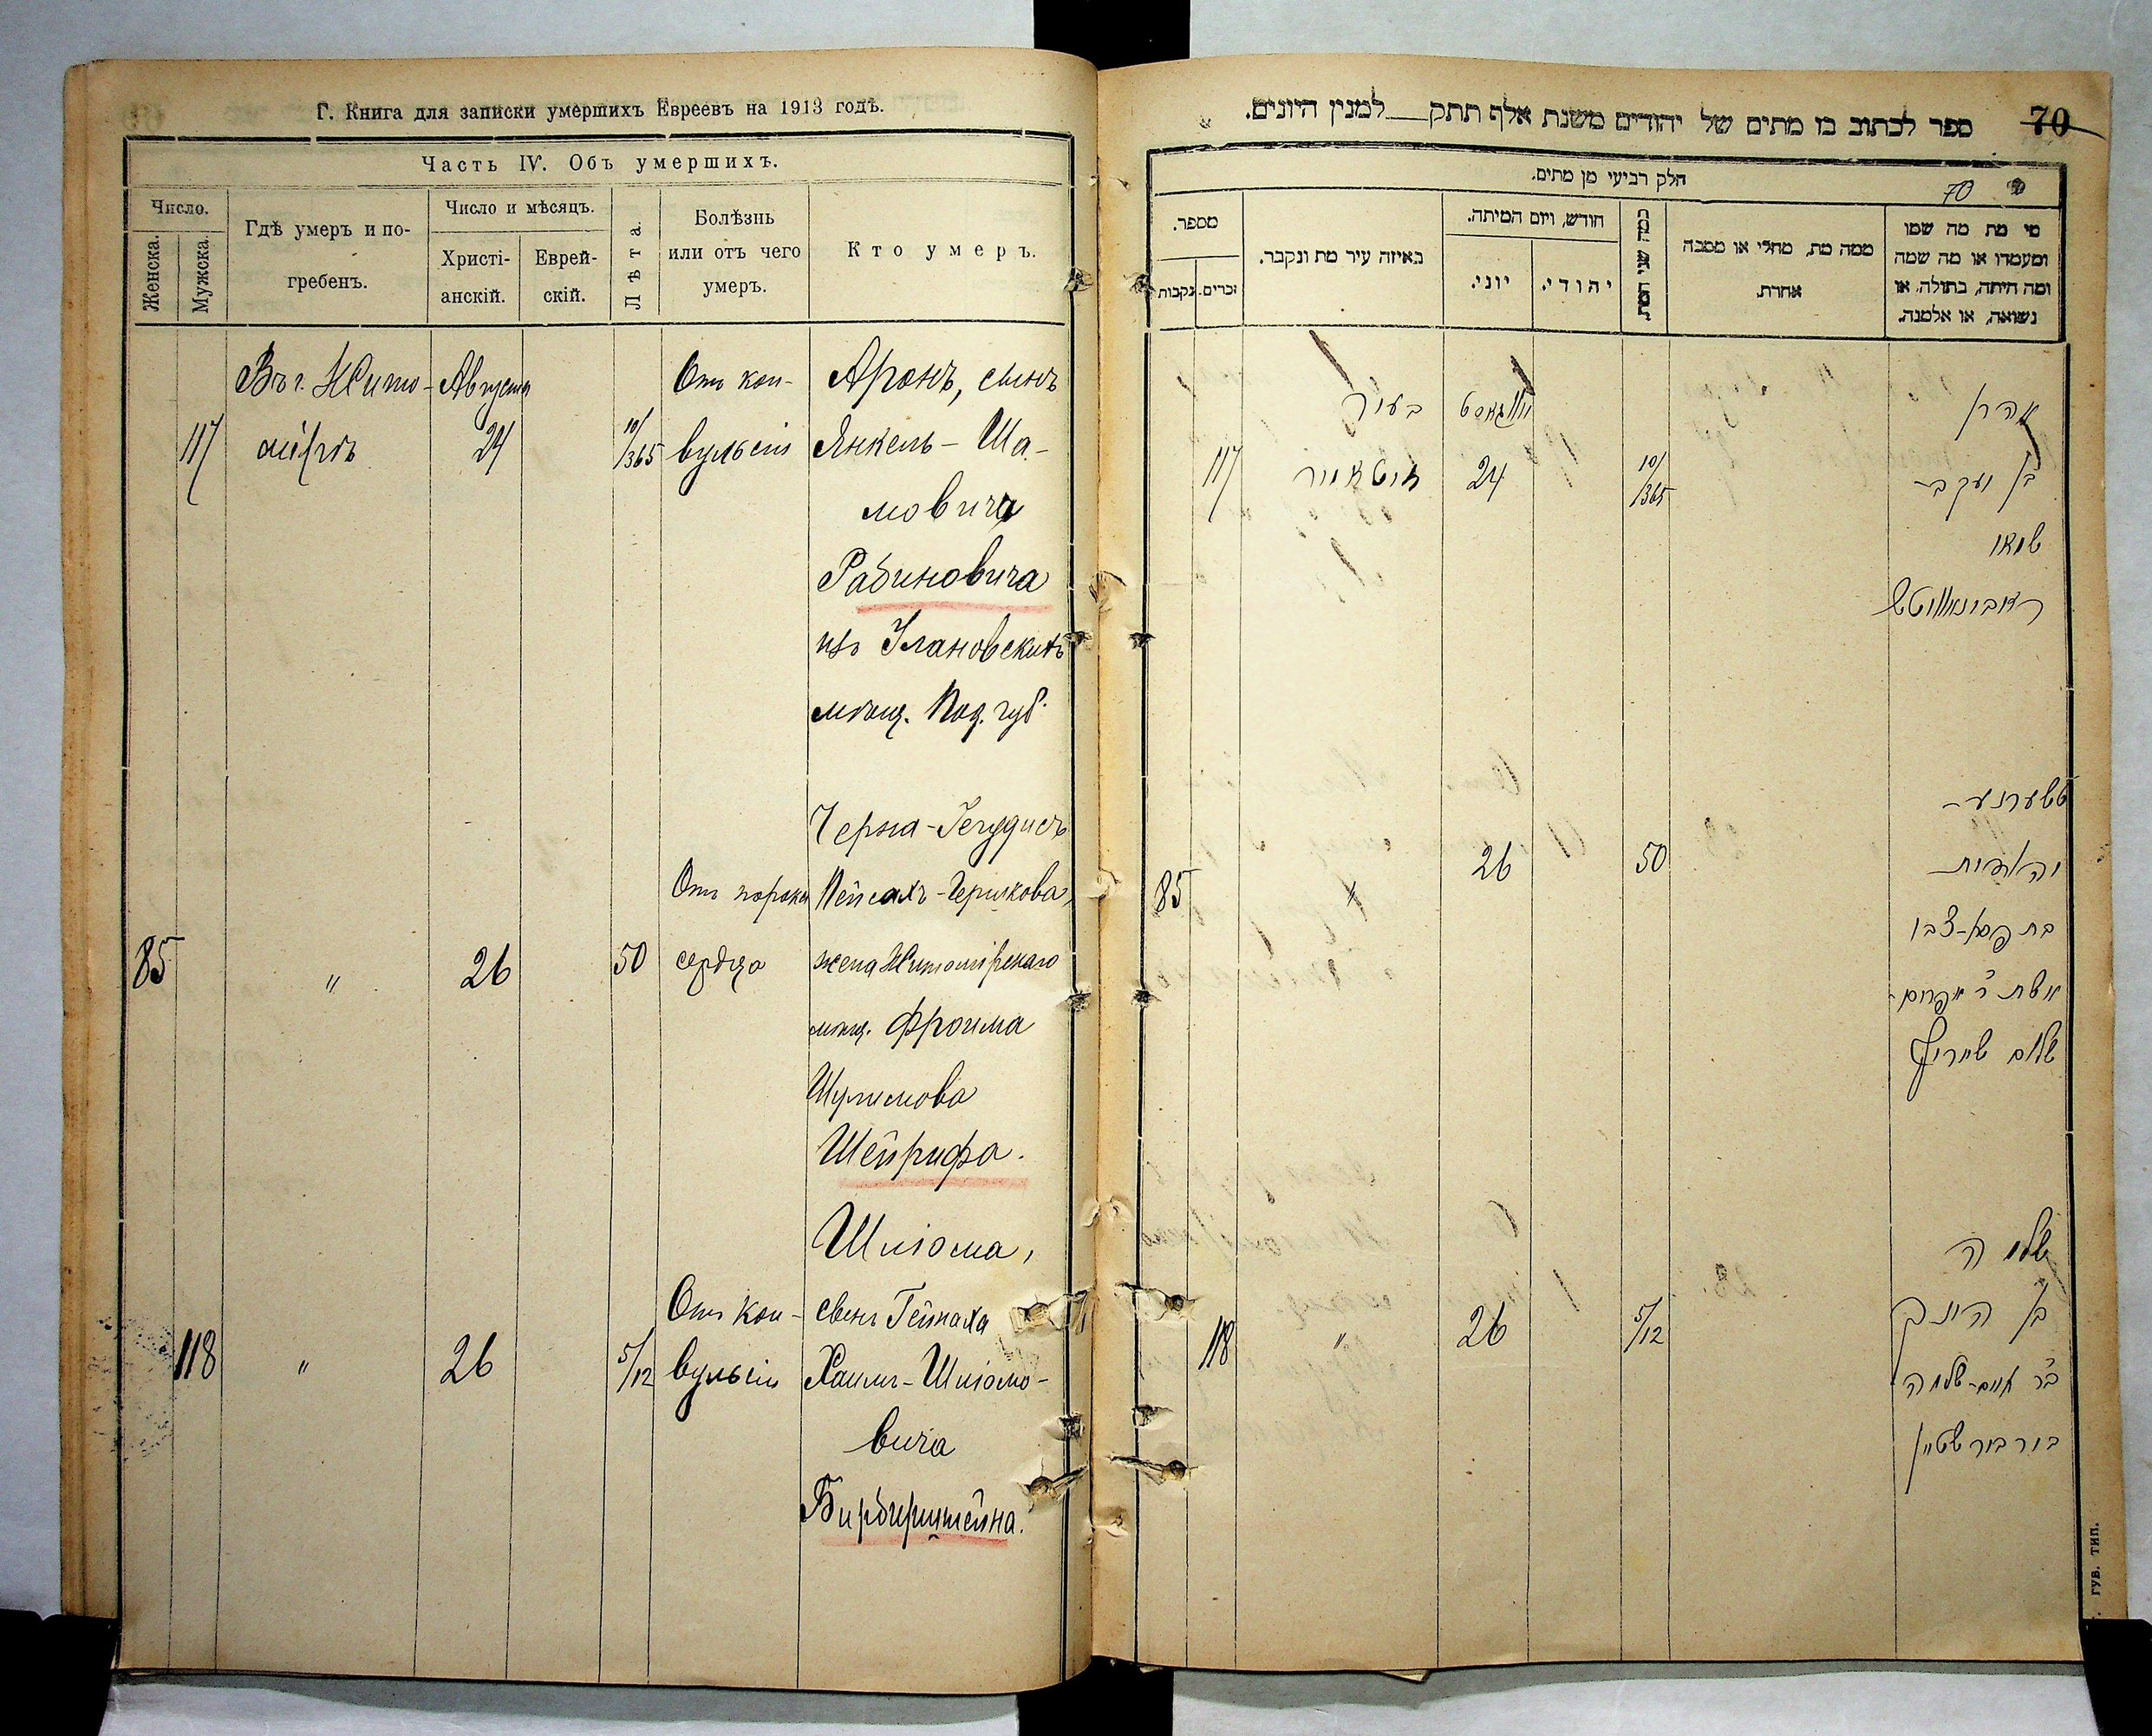 Г. Книга для записки умершихъ Евреевъ на 1913 годъ.
Часть IV. Объ умершихъ.
Число.
Женска.
Мужска.
Гдѣ умеръ и по-
гребенъ.
Число и мѣсяцъ.
Христі-
анскій.
Еврей-
скій.
Лѣта.
Болѣзнь
или отъ чего
умеръ.
Кто умеръ.
Въ г. Жито- Августа Отъ кон- Аронъ, сынъ
117 мірѣ 24 10/365 вульсіи Янкель-Ша-
мовича
Рабиновича
изъ Улановскихъ
мѣщ. Под. губ.
Черна-
Отъ порока Пейсахъ-Гершкова,
85 " 26 50 сердца жена Житомірскаго
мѣщ. Фроима
Шулимова
Шейрифа.
Шліома,
Отъ кон- сынъ Гейнаха
118 " 26 5/12 вульсіи Хаимъ-Шліомо-
вича
Бирберштейна.
ספר לכתוב בו מתים של יהודים משנת אלף תתק__למנין היונים.
70
חלק רביעי מן מתים.
70
מספר.
נקבות
זכרים.
באיזה עיר מת ונקבר.
חודש, ויום המיתה.
יוני.
יהודי.
כמה שני המת.
ממה מת, מחלי או מסבה
אחרת.
מי מת מה שמו
ומעמדו או מה שמה
ומה היתה, בתולה, או
נשואה, או אלמנה.
אהרן בעיר
117 זיטאמיר 24 10/365 בן יעקב-
ראבינאוויטש
טשערנע-
85 " 26 50 יהודית
בת פסח-צבי
אשת ר' אפרים-
שלום שייריף
שלמה
118 " 26 5/12 בן
ב"ר חיים-שלמה
בירבערשטיין
ГУБ. ТИП.